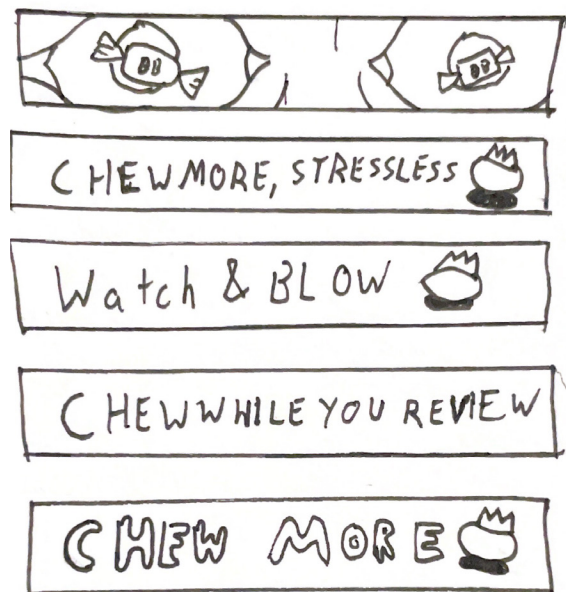 BB BB
CHEWMORE, STRESSLESS
Watch & BLOW
CHEWWHILE YOU REVIEW
CHEW MORE